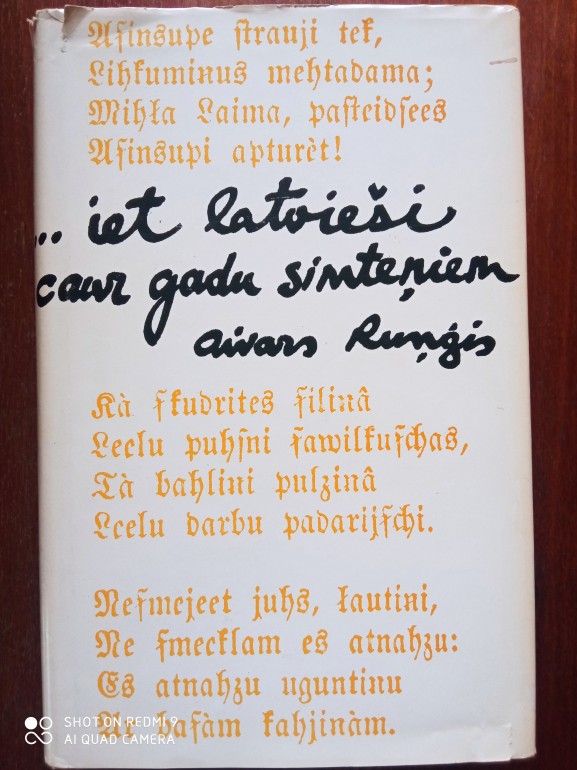 Aſinsupe ſtrauji tek,
Lihkuminus mehtadama;
Mihła Laima, paſteidſees
Aſinsupi apturèt!
... iet latvieši
caur gadu simteņiem
aivars Ruņģis
Kà ſkudrites ſilinâ
Leelu puhſni ſawilkuſchas,
Tà bahlini pulzinâ
Leelu darbu padarijſchi.
Neſmejeet juhs, łautini,
Ne ſmeeklam es atnahzu:
Es atnahzu uguntinu
Ar baſàm kahjinàm.
SHOT ON REDMI 9
AI QUAD CAMERA